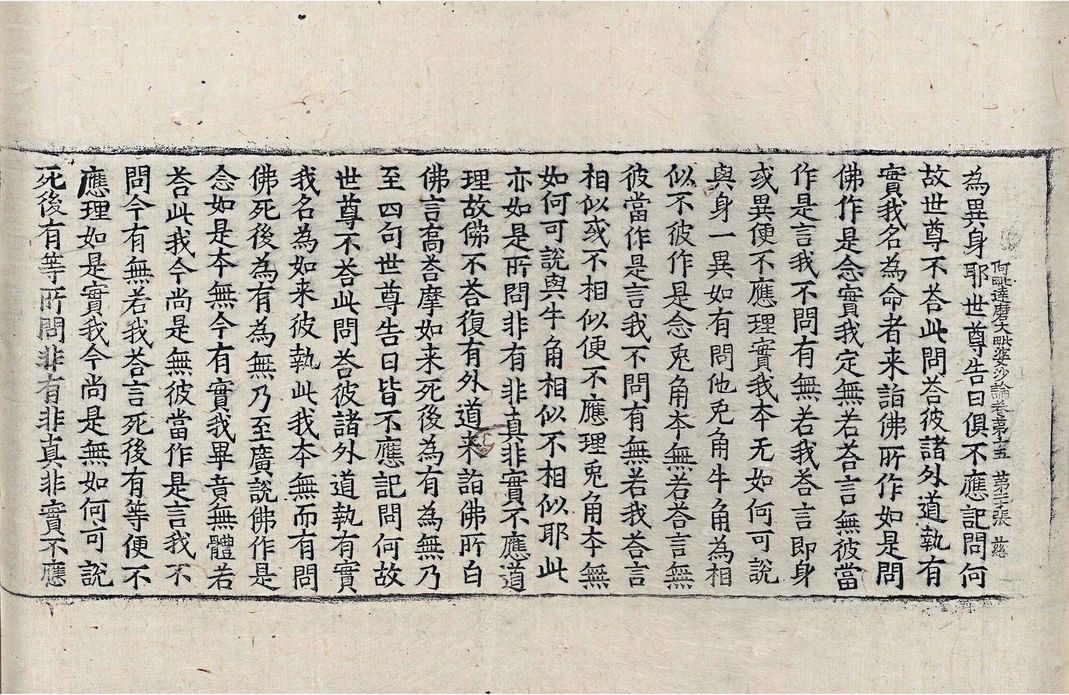 阿毗達磨大毗婆沙論卷第十五 第二十張 慈
為異身耶世尊告曰俱不應記問何
故世尊不荅此問荅彼諸外道執有
實我名為命者来詣佛所作如是問
佛作是念實我定無若荅言無彼當
作是言我不問有無若我荅言即身
或異便不應理實我夲无如何可說
與身一異如有問他兎角牛角為相
似不彼作是念兎角夲無若荅言無
彼當作是言我不問有無若我荅言
相似或不相似便不應理兎角夲無
如何可說與牛角相似不相似耶此
亦如是所問非有非真非實不應道
理故佛不荅復有外道来詣佛所白
佛言高荅摩如来死後為有為無乃
至四句世尊告曰皆不應記問何故
世尊不荅此問荅彼諸外道執有實
我名為如来彼執此我夲無而有問
佛死後為有為無乃至廣說佛作是
念如是夲無今有實我畢竟無體若
荅此我今尚是無彼當作是言我不
問今有無若我荅言死後有等便不
應理如是實我今尚是無如何可說
死後有等所問非有非真非實不應